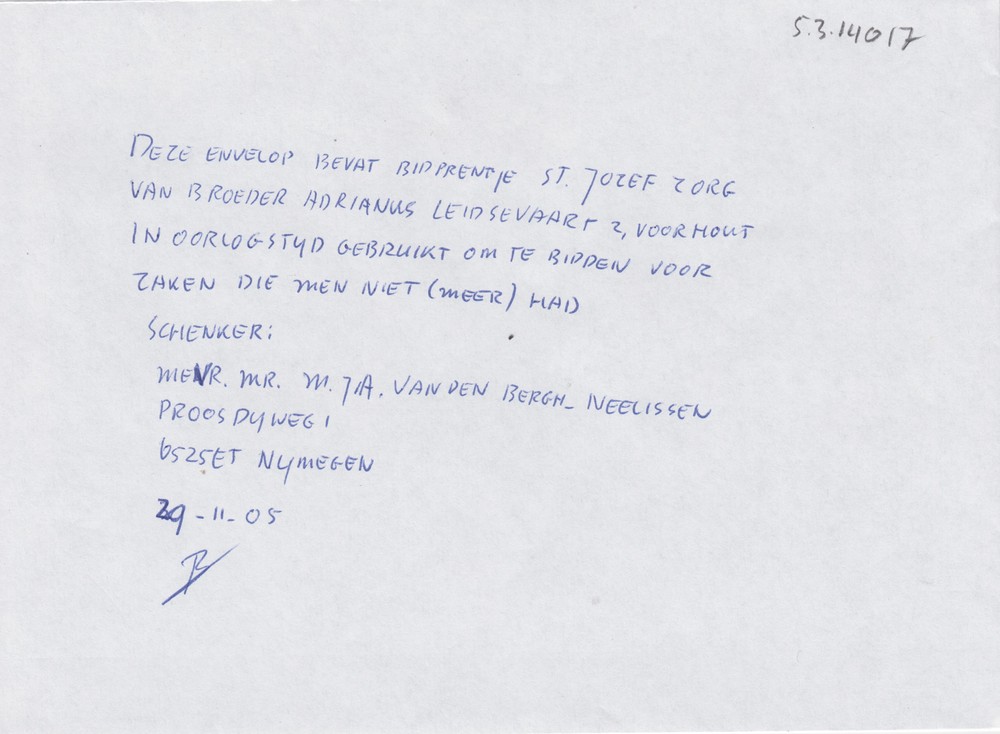 5.3.14017
DEZE ENVELOP BEVAT BIDPRENTJE ST. JOZEF ZORG
VAN BROEDER ADRIANUS LEIDSEVAART 2, VOORHOUT
IN OORLOGSTYD GEBRUIKT OM TE BIDDEN VOOR
ZAKEN DIE MEN NIET (MEER) HAD
SCHENKER:
MEVR. MR. M.J.A. VAN DEN BERGH-NEELISSEN
PROOSDYWEG 1
6525ET NYMEGEN
29-11-05